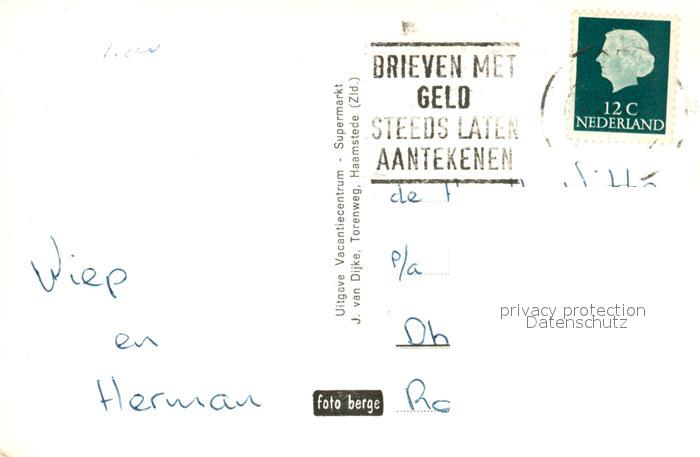 BRIEVEN MET
GELD
STEEDS LATEN
AANTEKENEN
12 C
NEDERLAND
Uitgave Vacantiecentrum - Supermarkt
J. van Dijke, Torenweg, Haamstede (Zld.)
Wiep
en
Herman
foto berge
de
p/a
Dh
privacy protection
Datenschutz